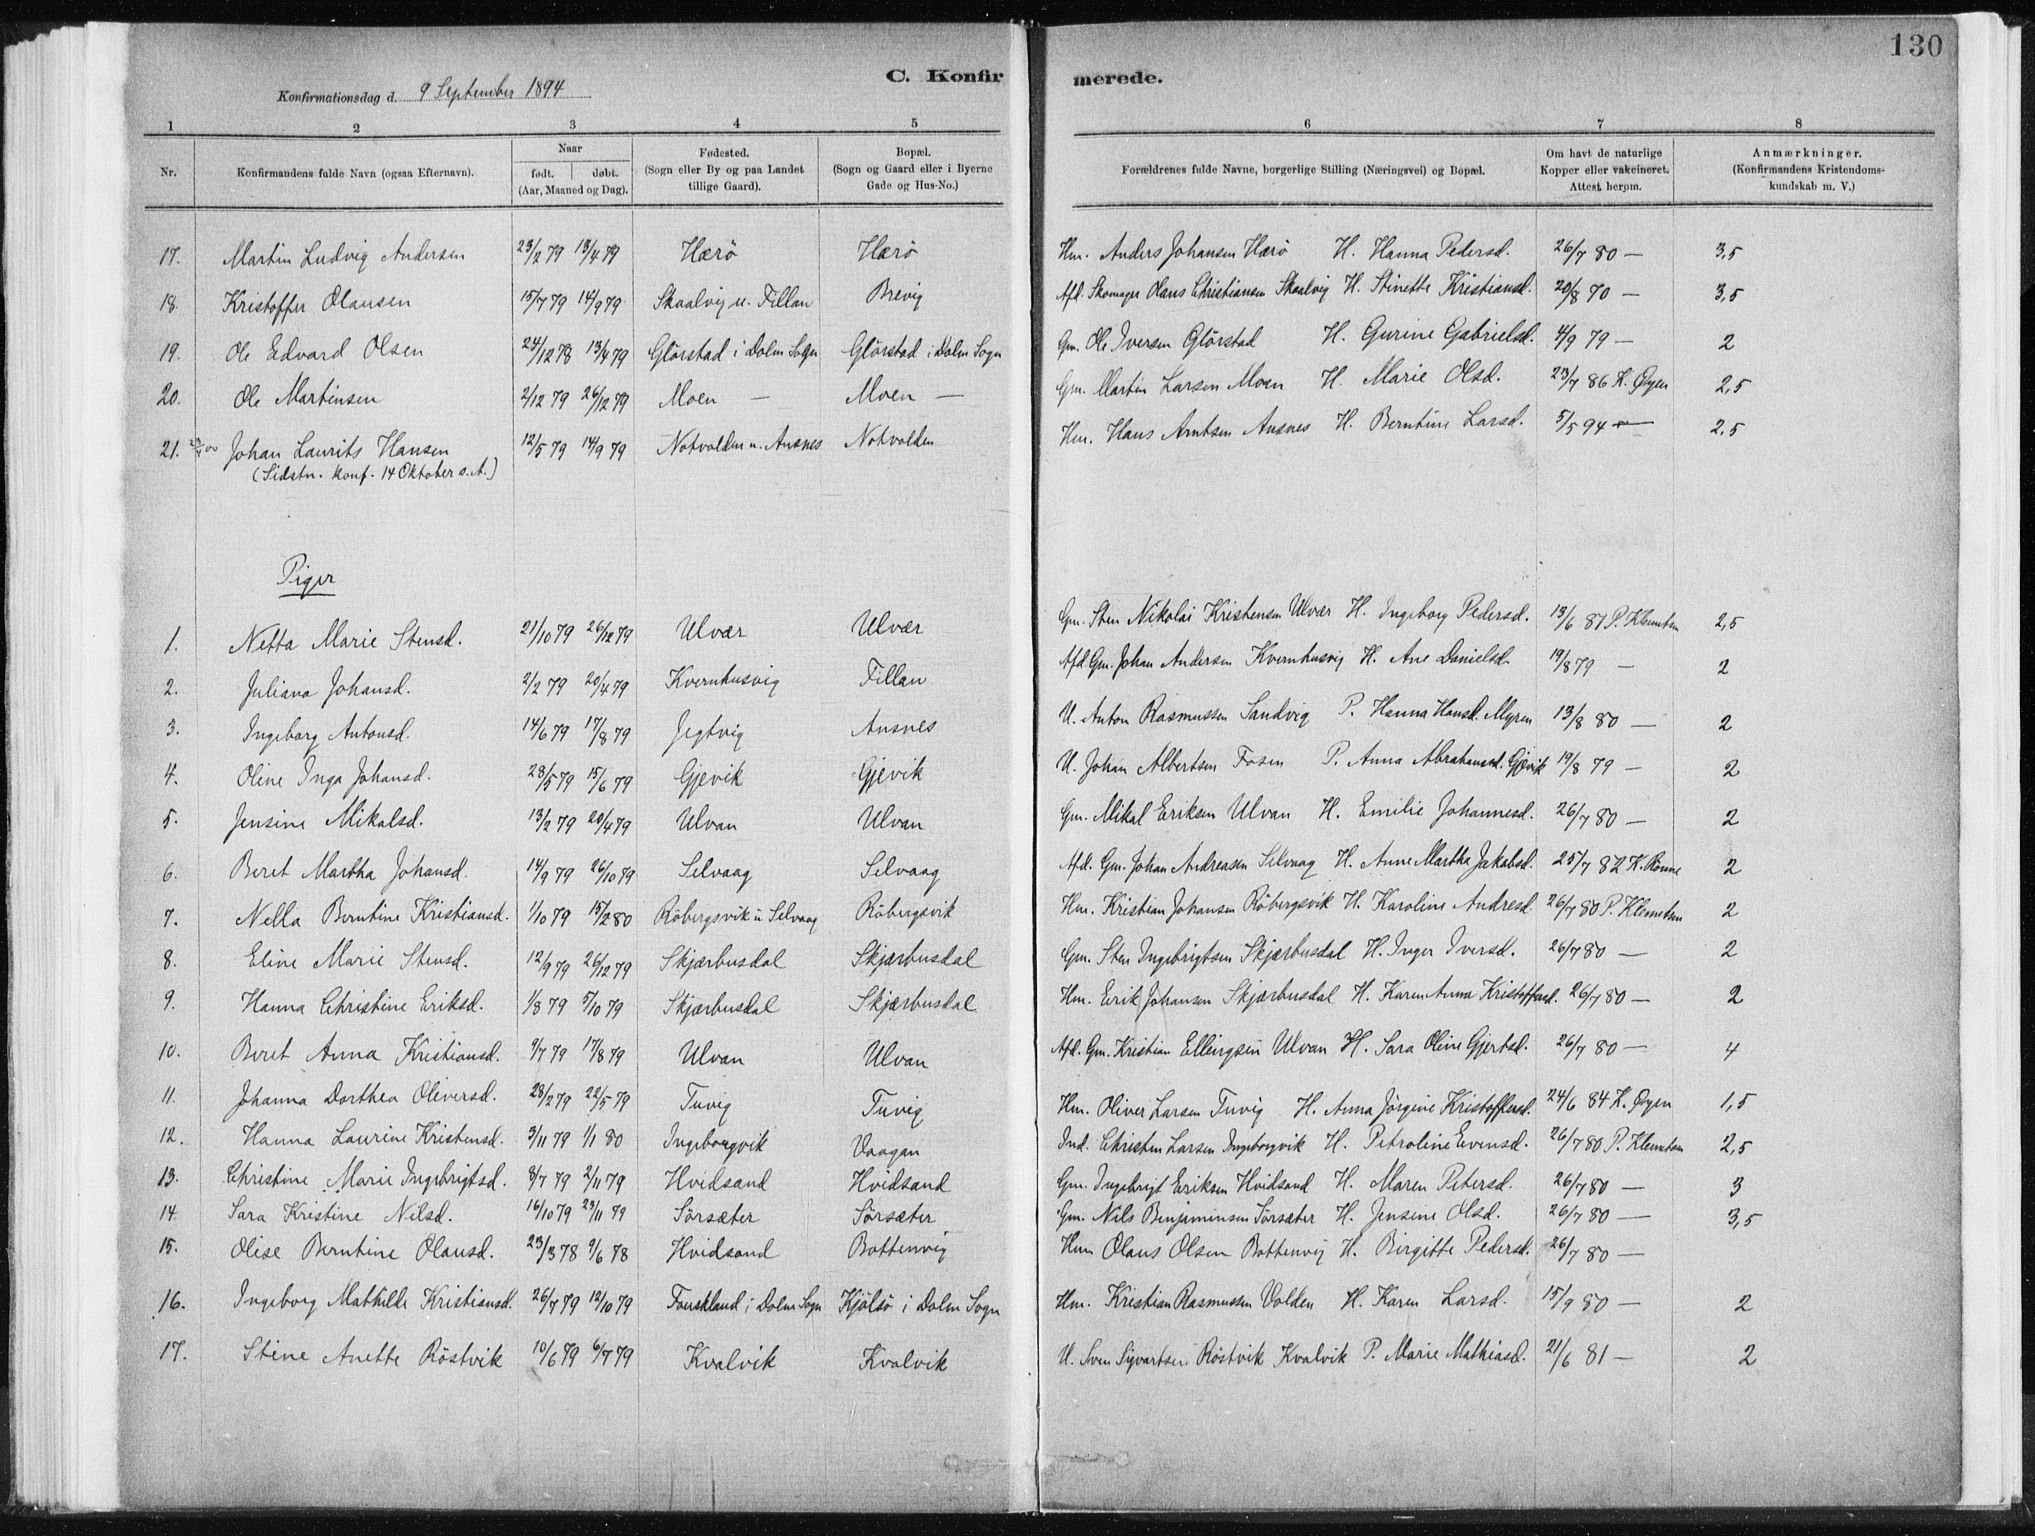 130
C. Konfirmerede.
Konfirmationsdag d. 9 September 1894
1 2 3 4 5 6 7 8
Nr. Konfirmandens fulde Navn (ogsaa Efternavn). Naar født. døbt. (Aar, Maaned og Dag). Fødested. (Sogn eller By og paa Landet tillige Gaard). Bopæl. (Sogn og Gaard eller i Byerne Gade og Hus-No.) Forældrenes fulde Navne, borgerlige Stilling (Næringsvei) og Bopæl. Om havt de naturlige Kopper eller vakcineret. Attest herpm. Anmærkninger. (Konfirmandens Kristendoms-kundskab m. V.)
17. Martin Ludvig Andersen 23/2 79 13/4 79 Hærø Hærø Hm. Anders Johansen Hærø H. Hanna Pedersd. 26/7 80 — 3,5
18. Kristoffer Olausen 15/7 79 14/9 79 Skaalvig u. Fillan Brevig Afd. Skomager Olaus Christiansen Skaalvig H. Stinette Kristiansd. 20/8 70 — 3,5
19. Ole Edvard Olsen 24/12 78 13/4 79 Glörstad i Dolm Sogn Glörstad i Dolm Sogn Gm. Ole Iversen Glörstad H. Gurine Gabrielsd. 4/9 79 — 2
20. Ole Martinsen 2/12 79 26/12 79 Moen — Moen — Gm. Martin Larsen Moen H. Marie Olsd. 23/7 86 K. Øyen 2,5
21. Johan Laurits Hansen 12/5 79 14/9 79 Notvolden u. Ansnes Notvolden Hm. Hans Arntsen Ansnes H. Berntine Larsd. 5/5 94 — 2,5
(Sidstn. konf. 14 Oktober s. A.)
Piger
1. Netta Marie Stensd. 21/10 79 26/12 79 Ulvær Ulvær Gm. Sten Nikolai Kristensen Ulvær H. Ingeborg Pedersd. 13/6 87 P. Klemetsen 2,5
2. Juliana Johansd. 2/2 79 20/4 79 Kvernhusvig Fillan Afd. Gm. Johan Andersen Kvernhusvig H. Ane Danielsd. 19/8 79 — 2
3. Ingeborg Antonsd. 14/6 79 17/8 79 Jegtvig Ansnes U. Anton Rasmussen Sandvig P. Hanna Hansd. Myren 13/8 80 — 2
4. Oline Inga Johansd. 28/5 79 15/6 79 Gjevik Gjevik U. Johan Albertsen Fosen P. Anna Abrahamsd. Gjevik 19/8 79 — 2
5. Jensine Mikalsd. 13/2 79 20/4 79 Ulvan Ulvan Gm. Mikal Eriksen Ulvan H. Emilie Johannesd. 26/7 80 — 2
6. Beret Martha Johansd. 14/9 79 26/10 79 Selvaag Selvaag Afd. Gm. Johan Andreasen Selvaag H. Anne Martha Jakobsd. 25/7 82 K. Rönne 2
7. Nella Berntine Kristiansd. 1/10 79 15/2 80 Röbergsvik u Selvaag Röbergsvik Hm. Kristian Johansen Röbergsvik H. Karoline Andresd. 26/7 80 P. Klemetsen 2
8. Eline Marie Stensd. 12/9 79 26/12 79 Skjærbusdal Skjærbusdal Gm. Sten Ingebrigtsen Skjærbusdal H. Inger Iversd. 26/7 80 — 2
9. Hanna Christine Eriksd. 1/8 79 5/10 79 Skjærbusdal Skjærbusdal Hm. Erik Johansen Skjærbusdal H. Karen Anna Kristoffersd. 26/7 80 — 2
10. Beret Anna Kristiansd. 9/7 79 17/8 79 Ulvan Ulvan Afd. Gm. Kristian Ellingsen Ulvan H. Sara Oline Gjertsd. 26/7 80 — 4
11. Johanna Dorthea Oliversd. 28/2 79 22/5 79 Tuvig Tuvig Hm. Oliver Larsen Tuvig H. Anna Jörgine Kristoffersd. 24/6 84 K. Øyen 1,5
12. Hanna Laurine Kristensd. 3/11 79 1/1 80 Ingeborgvik Vaagan Ind. Christen Larsen Ingeborgvik H. Petroline Evensd. 26/7 80 P. Klemetsen 2,5
13. Christine Marie Ingebrigtsd. 8/7 79 2/11 79 Hvidsand Hvidsand Gm. Ingebrigt Eriksen Hvidsand H. Maren Petersd. 26/7 80 — 3
14 Sara Kristine Nilsd. 16/10 79 23/11 79 Sörsæter Sörsæter Gm. Nils Benjaminsen Sörsæter H. Jensine Olsd. 26/7 80 — 3,5
15. Olise Berntine Olausd. 23/3 78 9/6 78 Hvidsand Bottenvig Hm Olaus Olsen Bottenvig H. Birgitte Pedersd. 26/7 80 —
16. Ingeborg Mathilde Kristiansd. 26/7 79 12/10 79 Fauskland i Dolm Sogn Kjölsö i Dolm Sogn Hm. Kristian Rasmussen Volden H. Karen Larsd. 15/9 80 — 2
17. Stine Anette Röstvik 10/6 79 6/7 79 Kvalvik Kvalvik U. Sven Sigvartsen Röstvik Kvalvik P. Marie Mathiasd. 21/6 81 — 2